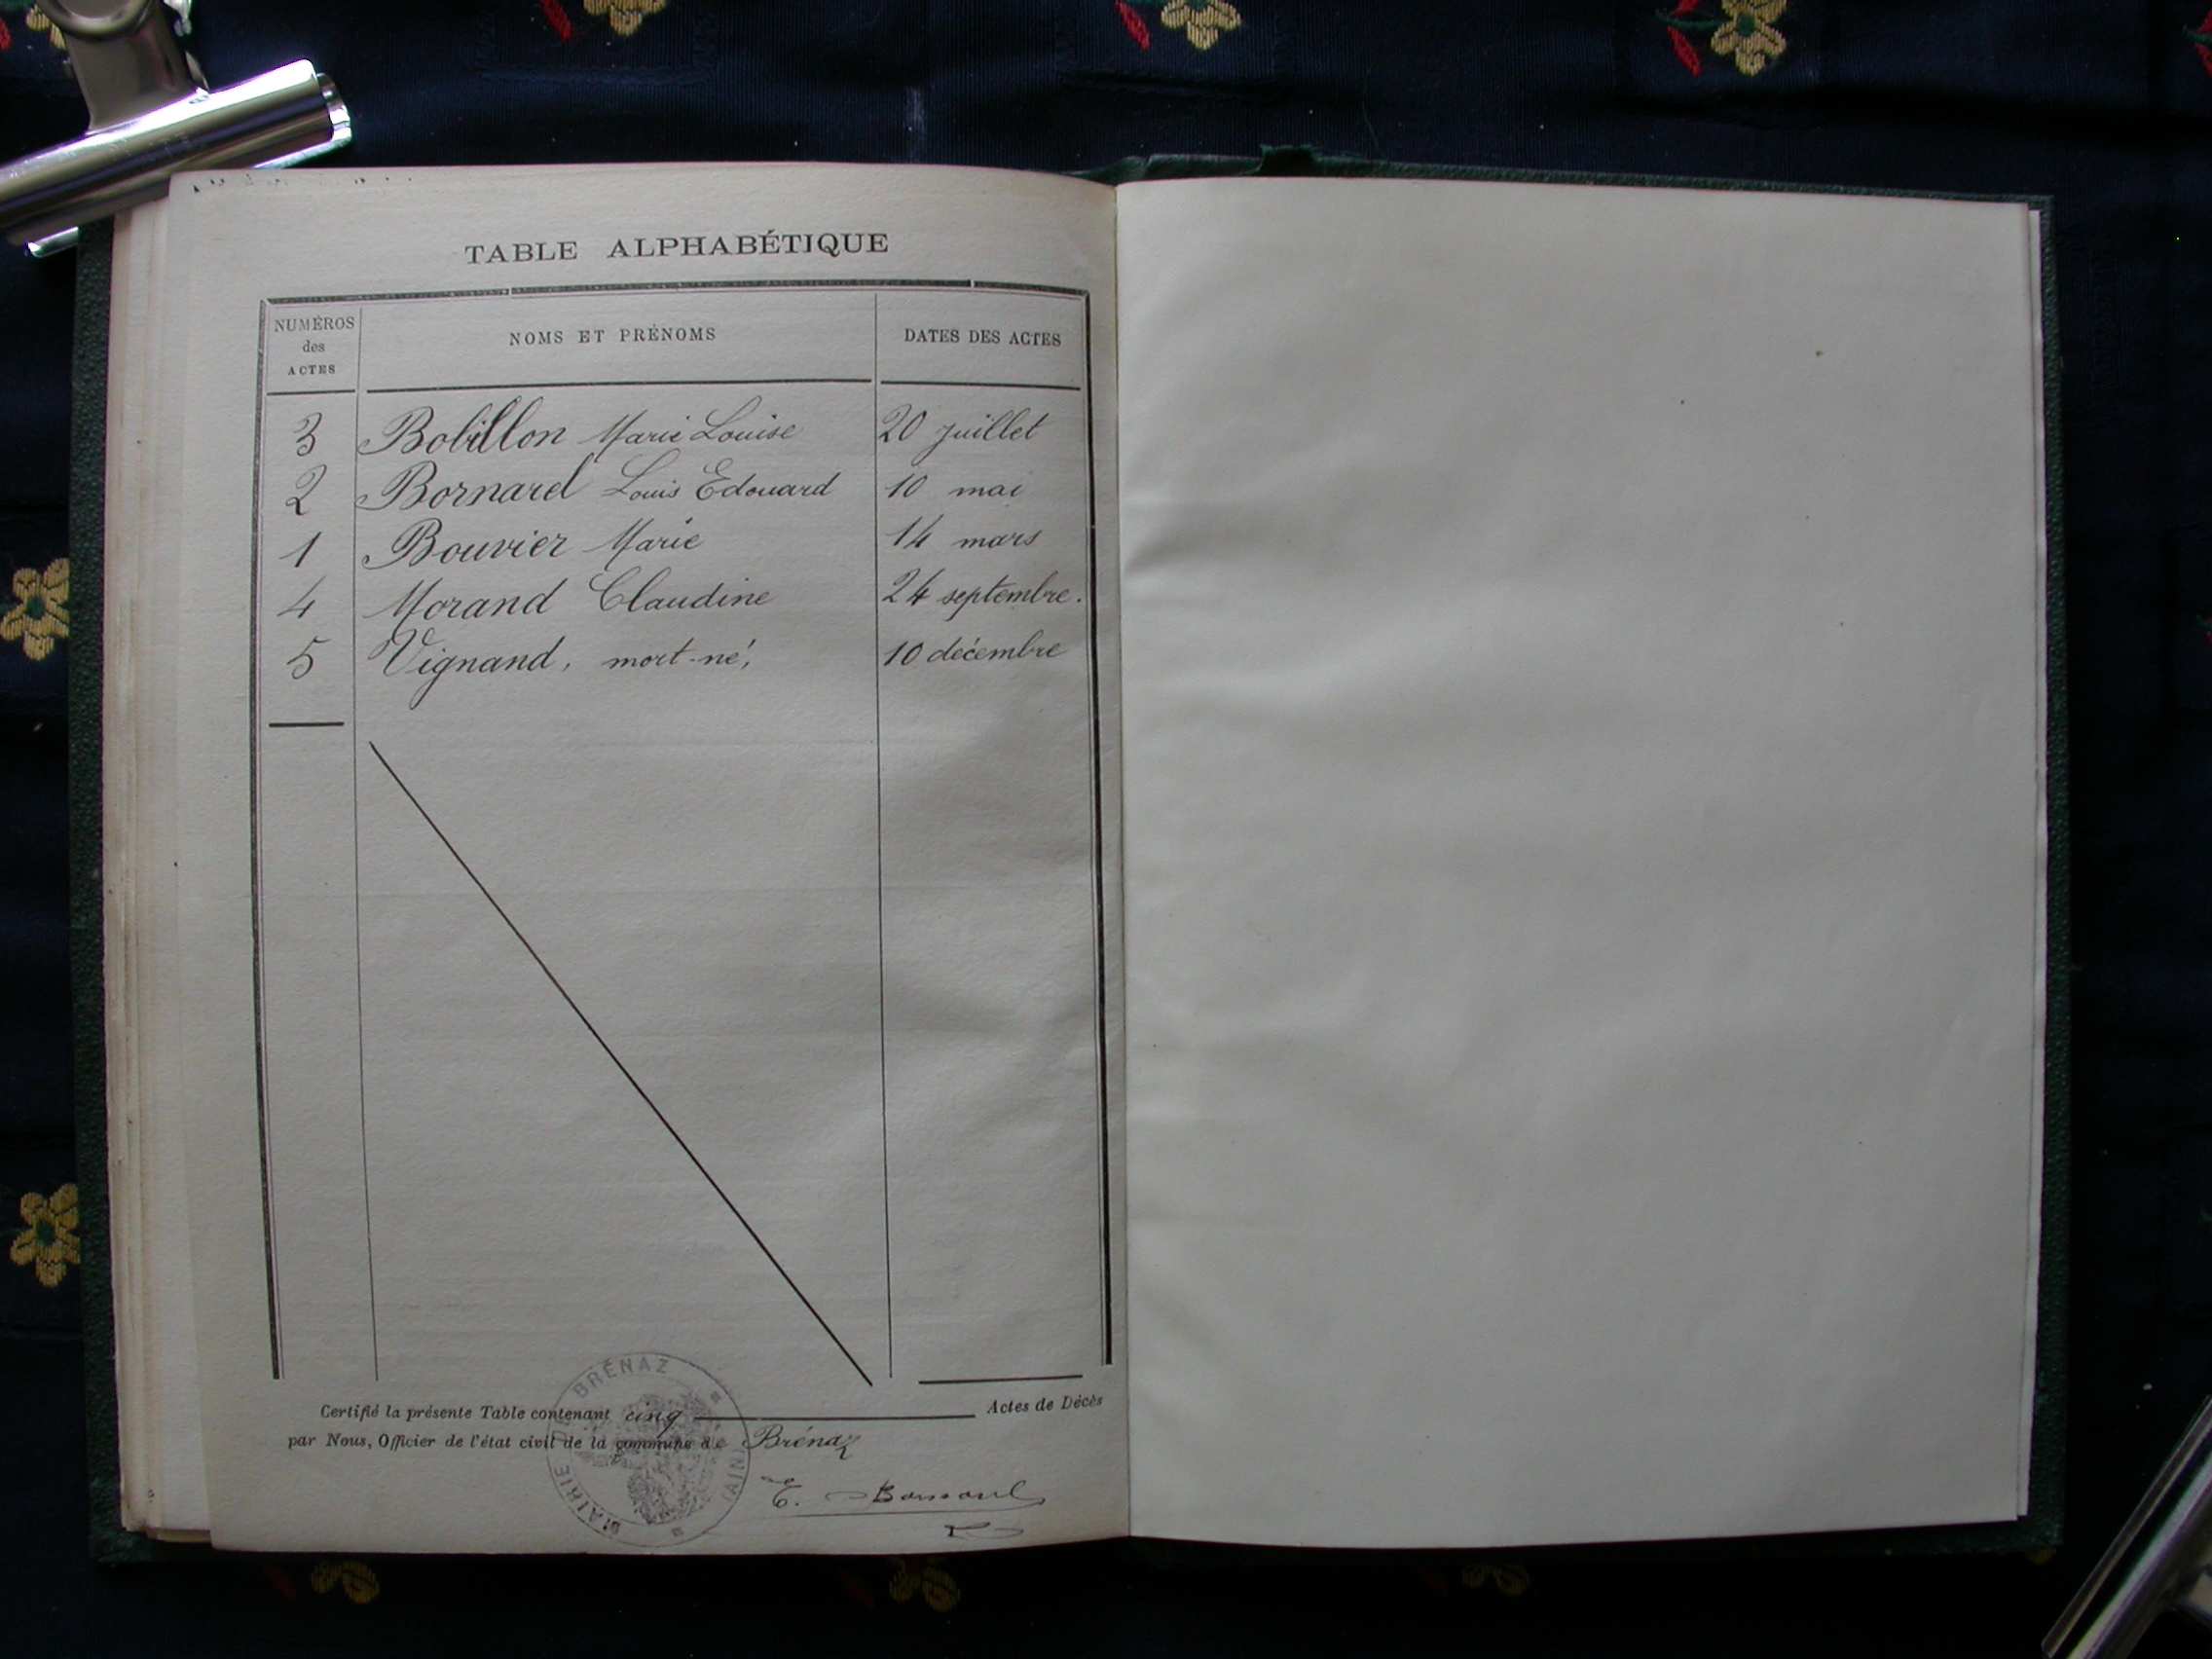 TABLE ALPHABÉTIQUE
NUMÉROS des ACTES NOMS ET PRÉNOMS DATES DES ACTES
3 Bobillon Marie Louise 20 juillet
2 Bornarel Louis Edouard 10 mai
1 Bouvier Marie 14 mars
4 Morand Claudine 24 septembre.
5 Vignand, mort-né, 10 décembre
Certifié la présente Table contenant cinq Actes de Décès
par Nous, Officier de l'état civil de la commune de Brénaz
MAIRIE DE BRÉNAZ (AIN)
E.